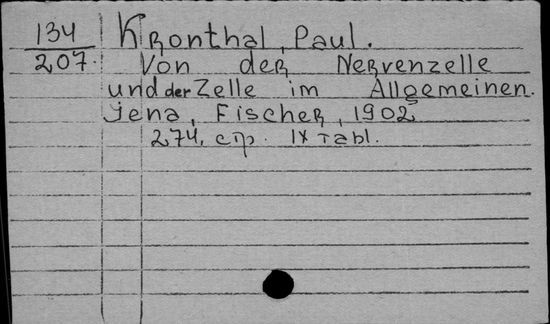 134
207.
Kronthal, Paul.
Von der Nervenzelle
und der Zelle im Allgemeinen.
Jena, Fischer, 1902
274. стр. IX Tabl.